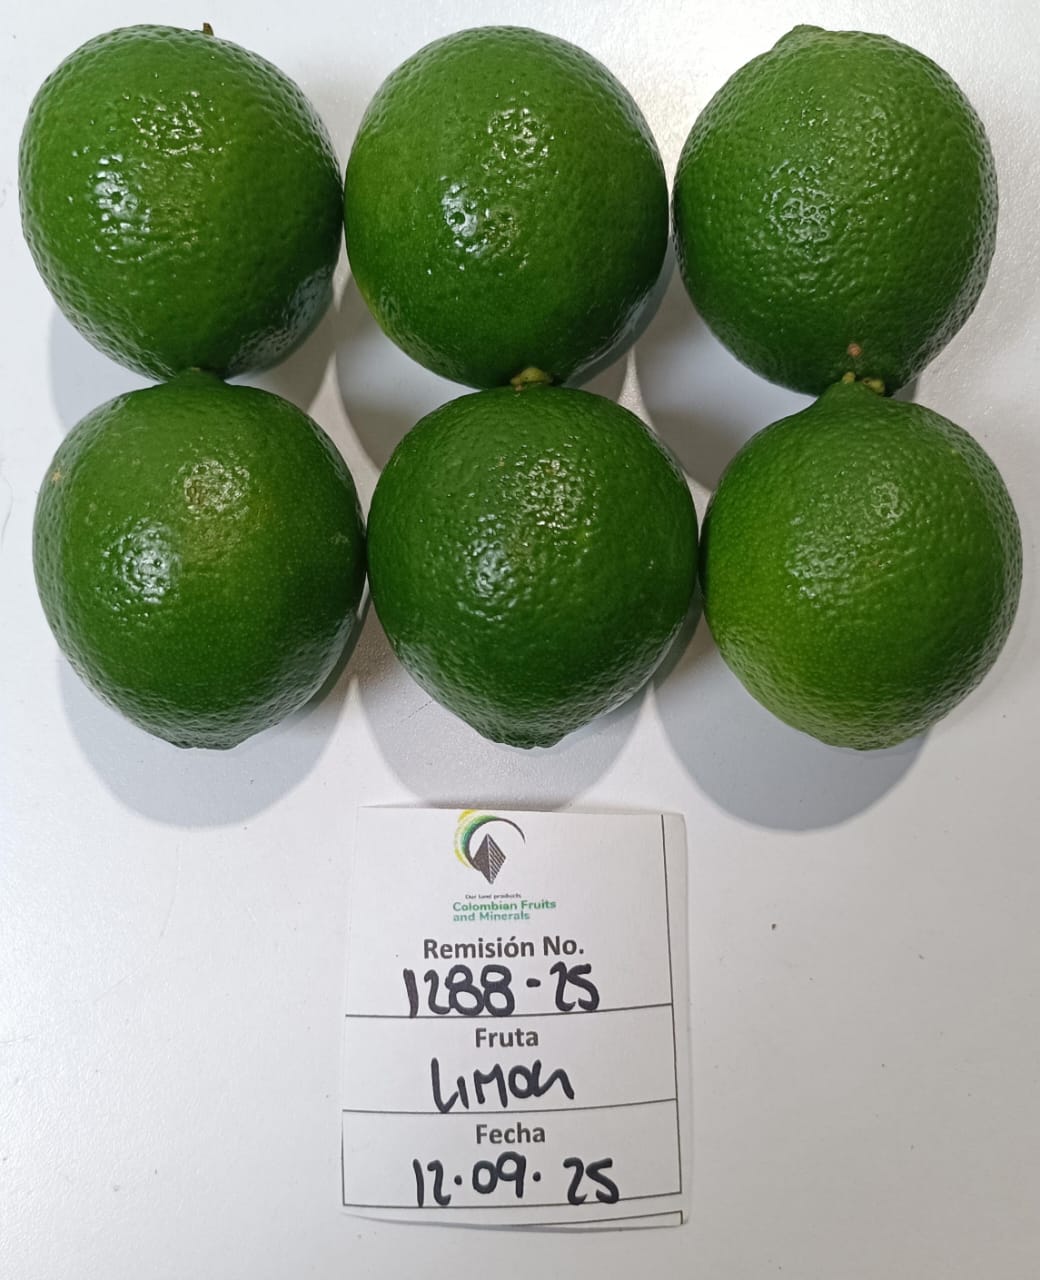 Our land products
Colombian Fruits
and Minerals
Remisión No.
1288-25
Fruta
LIMON
Fecha
12.09.25